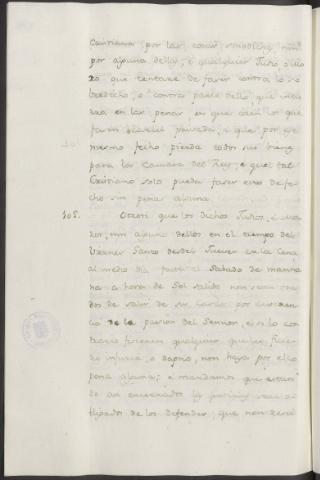 Cristiano por las cosas susodichas, nin
por alguna dellas, é qualquier Judio ó Mo
ro que tentare de facer contra lo so
bredicho, ó contra parte dello, que incu
rra en las penas, en que caen los que
facen carcel privada, é que por ese
mesmo fecho pierda todos sus bienes
para la Camara del Rey, é quel tal
Cristiano solo pueda facer esto de fe
cho sin pena alguna.
105. Otrosi que los dichos Judios, é Mo
ros, nin alguno dellos en el tiempo del
Viernes Santo desdel Jueves en la Cena
al medio dia fasta el Sabado de mañana
na á hora de Sol salido non sean osa
dos de salir de sus Casas por
cio de la pasion del Señor, é si lo con
trario ficieren qualquier quel
injuria, ó dapño, non haya por ello
pena alguna; é mandamos que estan
do asi encerrados las justicias sean o
bligados de los defender, que non